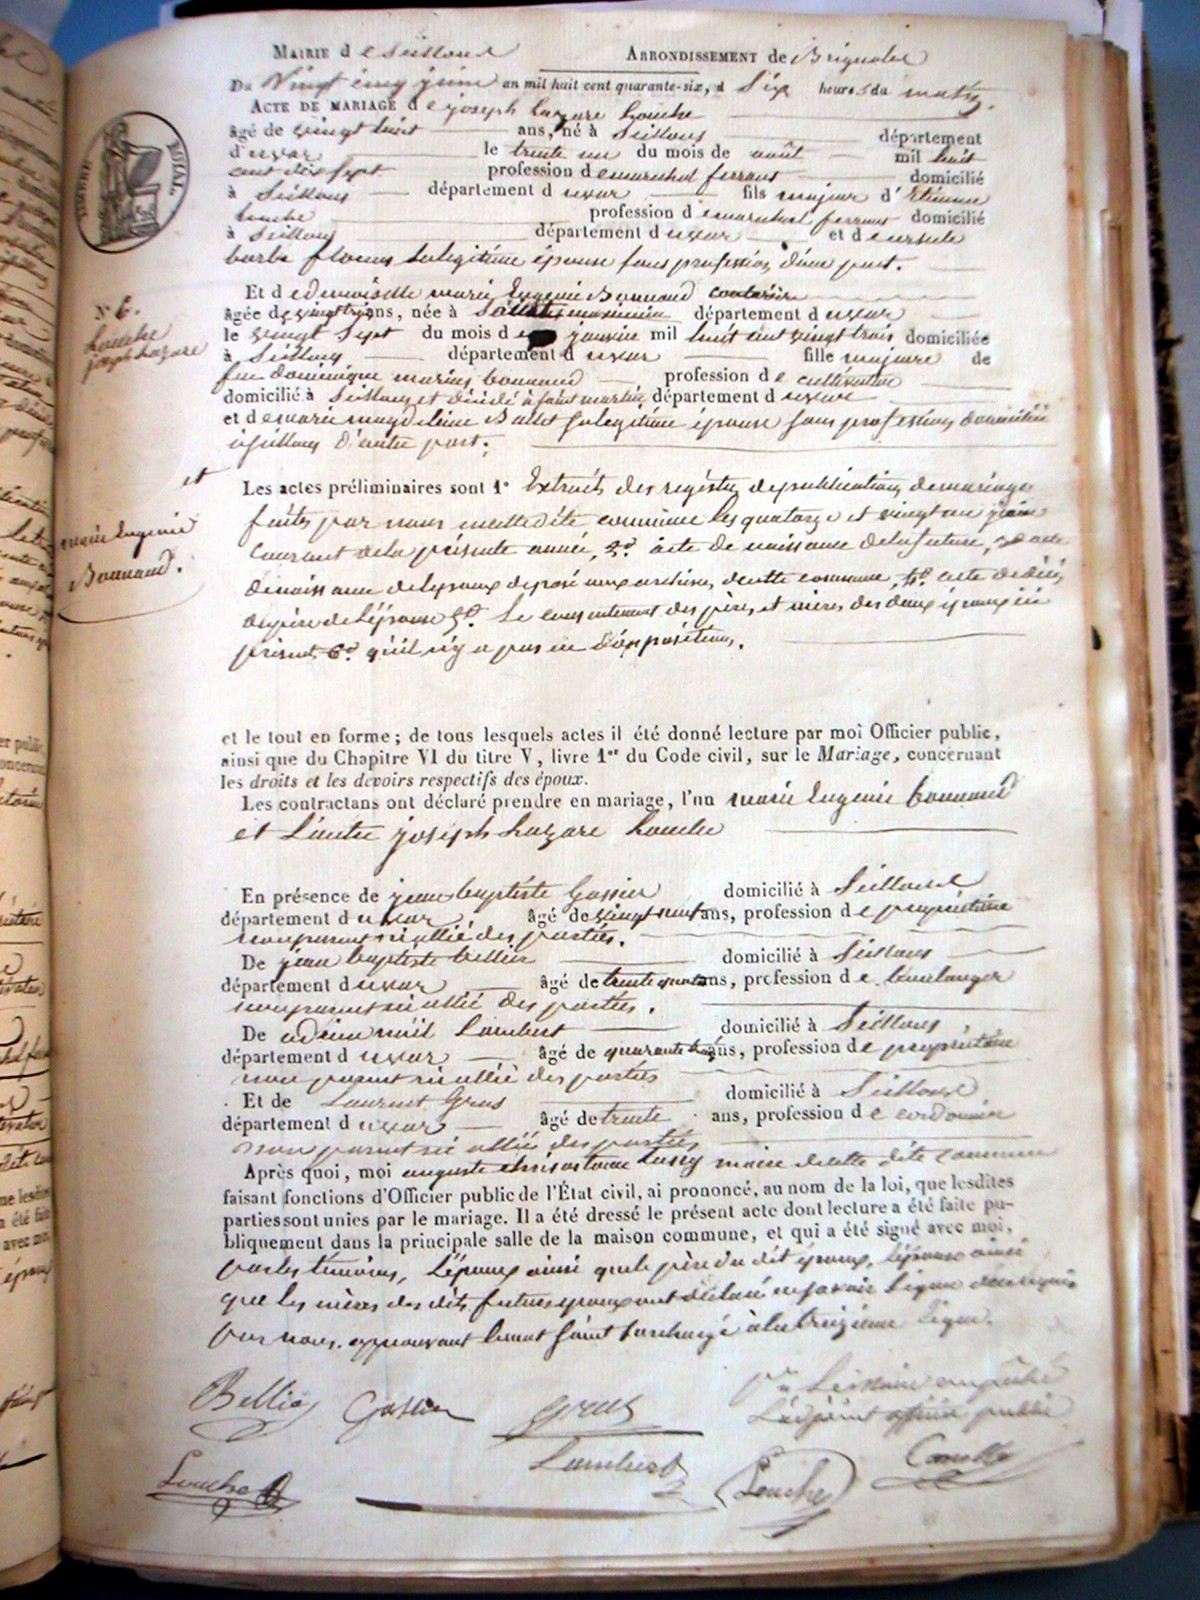 MAIRIE de Seillons ARRONDISSEMENT de Brignoles
Du Vingt cinq juin an mil huit cent quarante-six, à Six heures du matin.
ACTE DE MARIAGE de joseph Lazare Louche
âgé de vingt huit ans, né à Seillons département
du var le trente un du mois de août mil huit
cent dix sept profession de marechal ferrant domicilié
à Seillons département du var fils majeur d'Etienne
Louche profession de marechal ferrant domicilié
à Seillons département du var et de ursule
barbe sa legitime épouse sans profession, d'une part.
Et de demoiselle marie Eugenie Bonnaud couturière
âgée de vingt trois ans, née à Saint maximin département du var
le vingt Sept du mois de janvier mil huit cent vingt trois domiciliée
à Seillons département du var fille majeure de
feu dominique marius bonnaud profession de cultivateur
domicilié à Seillons et décédé à saint martin département du var
et de marie magdeleine Ballet sa legitime épouse sans profession, domiciliée
à Seillons d'autre part.
TIMBRE ROYAL.
N° 6.
Louche
joseph Lazare
et
marie Eugenie
Bonnaud.
Les actes préliminaires sont 1° Extraits des registres de publications de mariage
faites par nous en cette dite commune les quatorze et vingt un juin
courant de la présente année, 2° acte de naissance de la future, 3° acte
de naissance de l'epoux deposé aux archives de cette commune, 4° acte de décès
du père de l'épouse 5° Le consentement des pères et mères des deux epoux ici
présents 6° qu'il n'y a pas eu d'opposition.
et le tout en forme ; de tous lesquels actes il été donné lecture par moi Officier public,
ainsi que du Chapitre VI du titre V, livre 1er du Code civil, sur le Mariage, concernant
les droits et les devoirs respectifs des époux.
Les contractans ont déclaré prendre en mariage, l'un marie Eugenie bonnaud
et L'autre joseph Lazare Louche
En présence de jean baptiste Gassier domicilié à Seillons
département du var âgé de vingt neuf ans, profession de propriétaire
non parent ni allié des parties.
De jean baptiste bellier domicilié à Seillons
département du var âgé de trente quatre ans, profession de boulanger
non parent ni allié des parties.
De Lambert domicilié à Seillons
département du var âgé de quarante trois ans, profession de propriétaire
non parent ni allié des parties
Et de Laurent Gras domicilié à Seillons
département du var âgé de trente ans, profession de cordonnier
non parent ni allié des parties
Après quoi, moi auguste chrisostome maire de cette dite commune
faisant fonctions d'Officier public de l'État civil, ai prononcé, au nom de la loi, que lesdites
parties sont unies par le mariage. Il a été dressé le présent acte dont lecture a été faite pu-
bliquement dans la principale salle de la maison commune, et qui a été signé avec moi,
par les témoins, L'époux ainsi que le père du dit époux, L'épouse ainsi
que les mères des dits futurs epoux ont déclaré ne savoir signer de ce requis
par nous. approuvant le mot Saint surchargé à la treizième ligne.
Bellier Gassier Gras Pr Le maire empêché
L'adjoint officier public
Lambert
Louche Louche